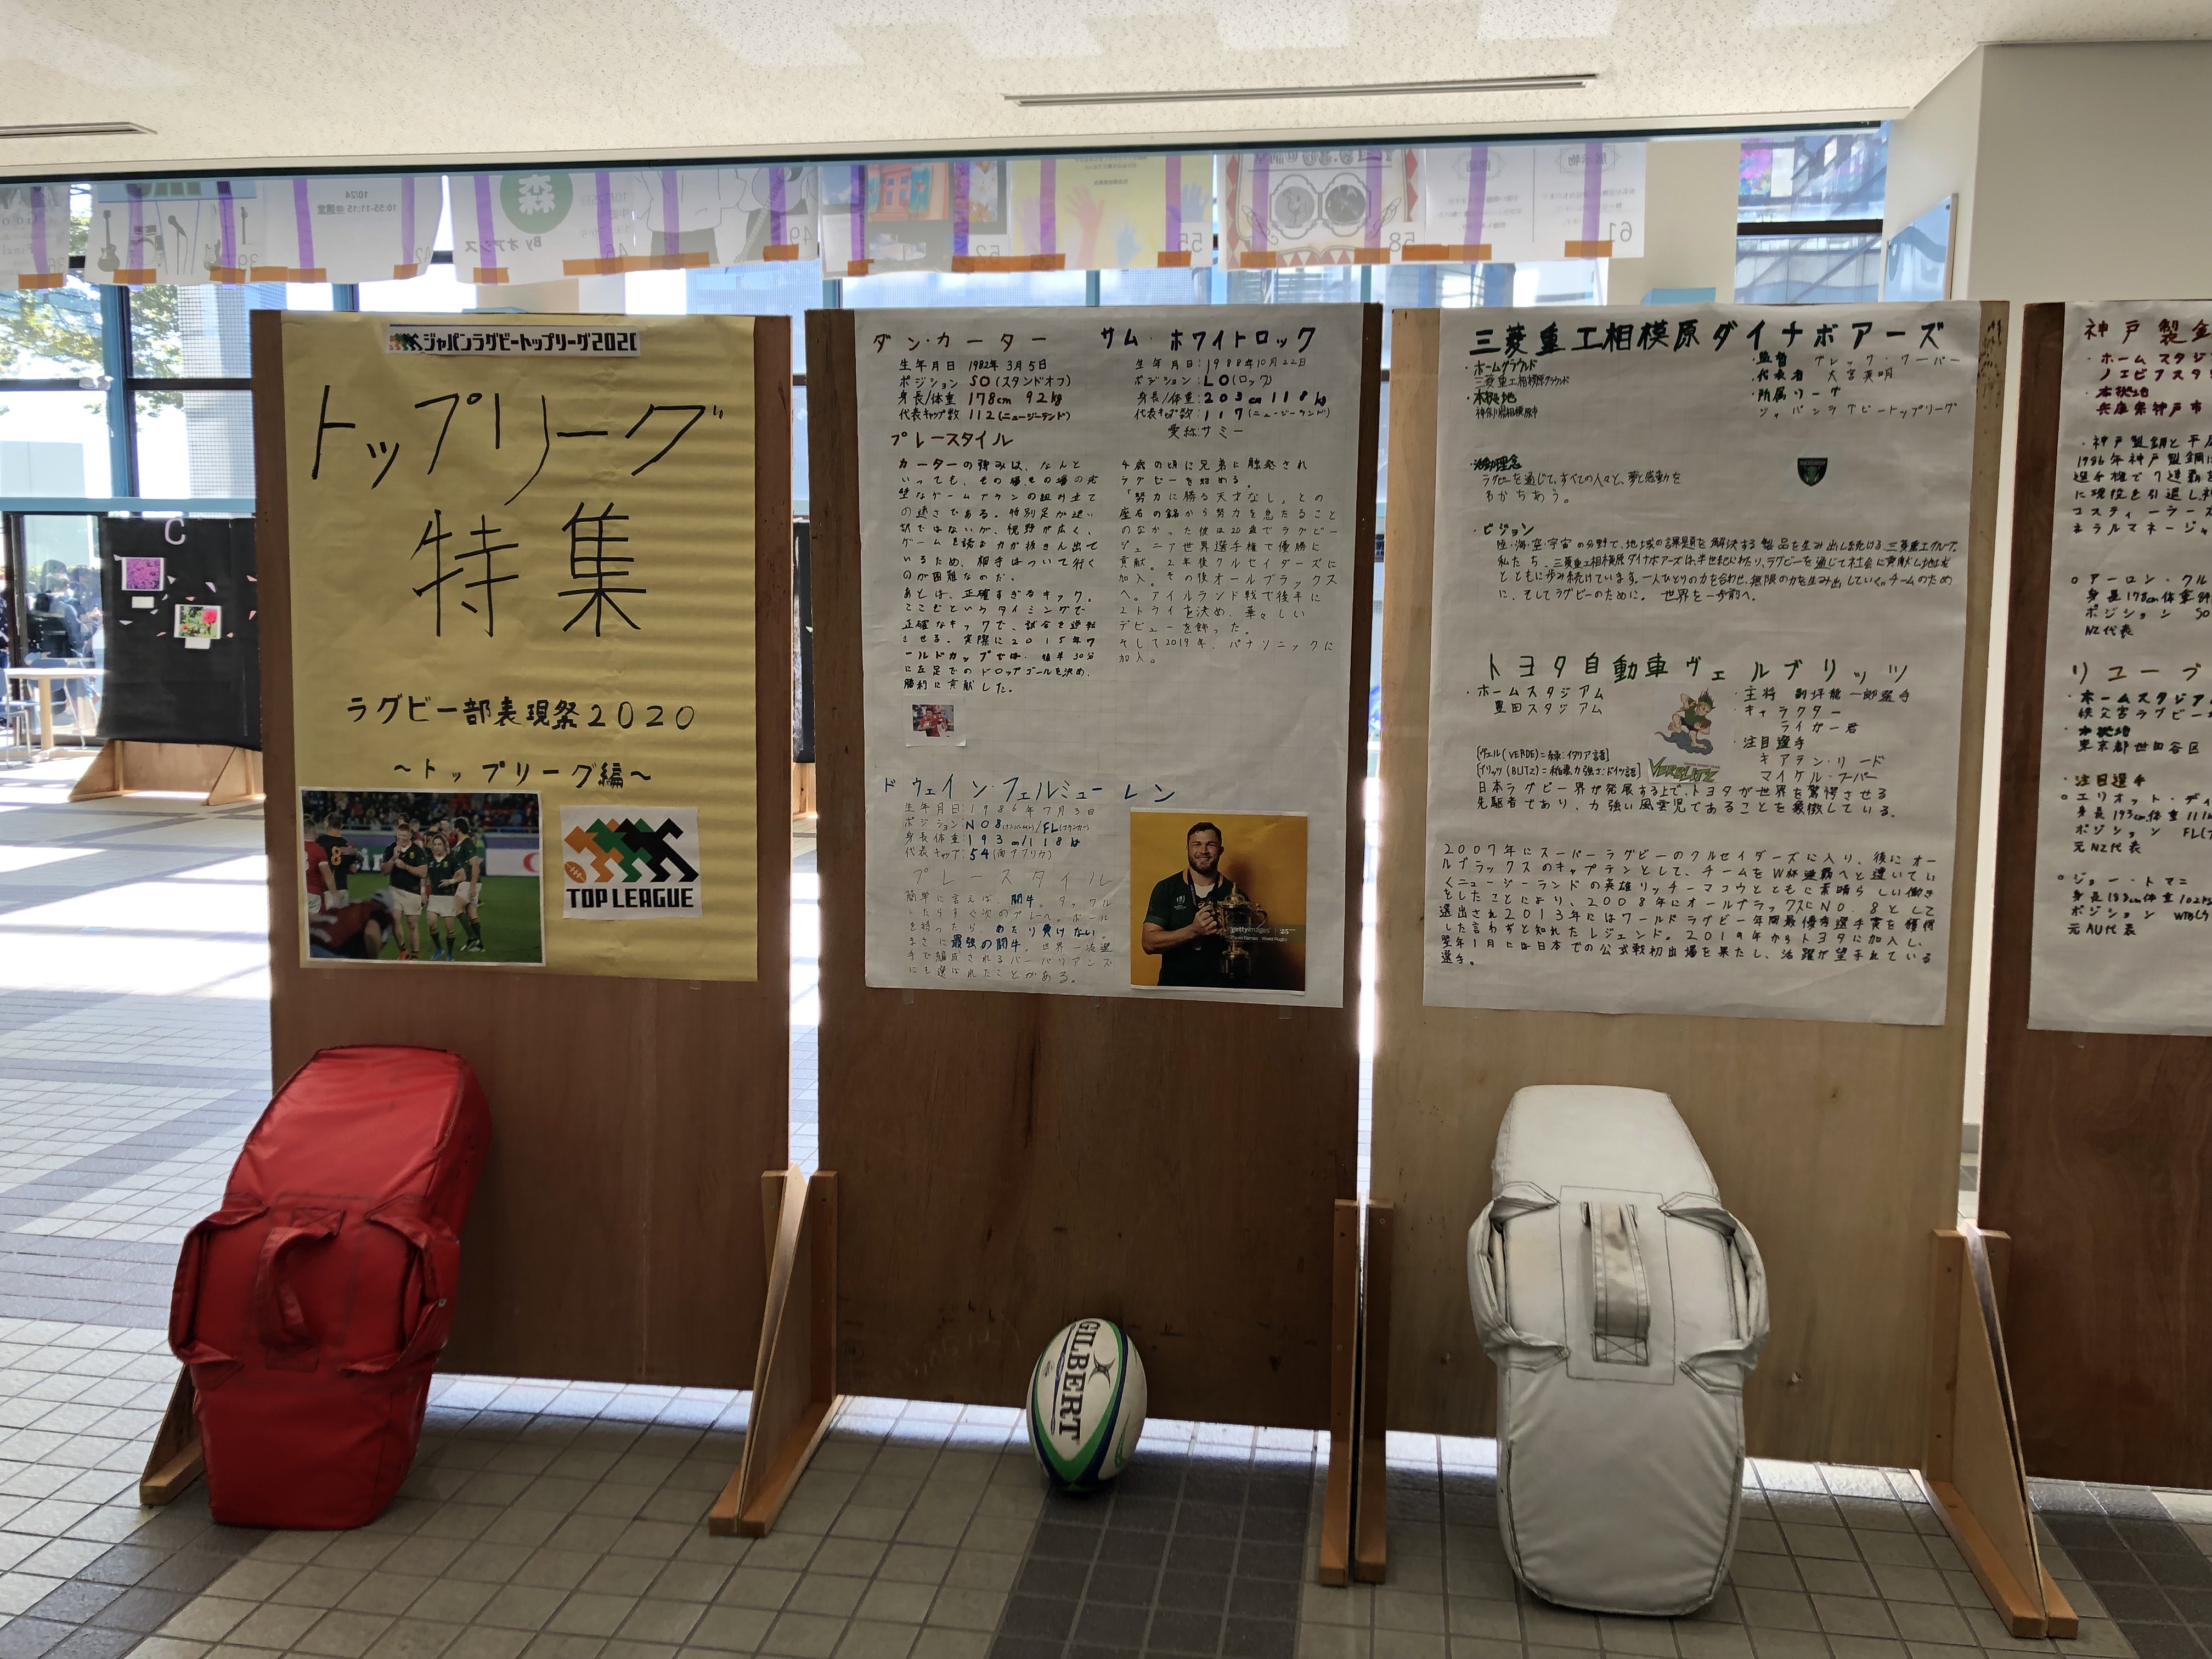 10/24
10:55-11:15@講堂
森
By オアシス
39
42
46
49
52
55
58
61
展示物
C
ジャパンラグビートップリーグ2020
トップリーグ
特集
ラグビー部表現祭2020
～トップリーグ編～
TOP LEAGUE
ダン・カーター
生年月日 1982年3月5日
ポジション SO(スタンドオフ)
身長/体重 178cm 92kg
代表キャップ数 112(ニュージーランド)
プレースタイル
カーターの強みは、なんと
いっても、その場その場の完
璧なゲームプランの組み立て
の速さである。特別足が速い
訳ではないが、視野が広く、
ゲームを読む力が抜きん出て
いるため、相手はついて行く
のが困難なのだ。
あとは、正確すぎるキック。
ここぞというタイミングで
正確なキックで、試合を逆転
させる。実際に2015年ワ
ールドカップでは、後半30分
に左足でのドロップゴールを決め、
勝利に貢献した。
サム・ホワイトロック
生年月日:1988年10月22日
ポジション:LO(ロック)
身長/体重:203cm 118kg
代表キャップ数:117(ニュージーランド)
愛称:サミー
4歳の頃に兄弟に触発され
ラグビーを始める。
「努力に勝る天才なし」との
座右の銘から努力を怠たること
のなかった彼は20歳でラグビー
ジュニア世界選手権で優勝に
貢献。2年後クルセイダーズに
加入。その後オールブラックス
へ。アイルランド戦で後半に
2トライを決め、華々しい
デビューを飾った。
そして2019年、パナソニックに
加入。
ドウェイン・フェルミューレン
生年月日:1986年7月3日
ポジション:NO8(ナンバーエイト)/FL(フランカー)
身長体重:193cm/118kg
代表キャップ:54(南アフリカ)
プレースタイル
簡単に言えば、闘牛。タックル
したらすぐ次のプレーへ。ボール
を持ったら、あたり負けない。
まさに最強の闘牛。世界一流選
手で編成されるバーバリアンズ
にも選ばれたことがある。
gettyimages
三菱重工相模原ダイナボアーズ
・ホームグラウンド
三菱重工相模原グラウンド
・本拠地
神奈川県相模原市
・監督 グレッグ・クーパー
・代表者 大宮英明
・所属リーグ
ジャパンラグビートップリーグ
・活動理念
ラグビーを通じて、すべての人々と、夢と感動を
わかちあう。
・ビジョン
陸・海・空・宇宙の分野で、地球の課題を解決する製品を生み出し続ける、三菱重工グループ。
私たち、三菱重工相模原ダイナボアーズは、半世紀にわたり、ラグビーを通じて社会に貢献し地域
とともに歩み続けています。一人ひとりの力を合わせ、無限の力を生み出していく。チームのため
に、そしてラグビーのために。世界を一歩前へ。
トヨタ自動車ヴェルブリッツ
・ホームスタジアム
豊田スタジアム
・主将 姫野和樹選手
・キャラクター
ライガー君
・注目選手
キアラン・リード
マイケル・フーパー
[ヴェル(VERDE)=緑:イタリア語]
[ブリッツ(BLITZ)=稲妻、力強さ:ドイツ語]
VERBLITZ
日本ラグビー界が発展する上で、トヨタが世界を驚愕させる
先駆者であり、力強い風雲児であることを象徴している。
2007年にスーパーラグビーのクルセイダーズに入り、後にオー
ルブラックスのキャプテンとして、チームをW杯連覇へと導いてい
くニュージーランドの英雄リッチーマコウとともに素晴らしい働き
をしたことにより、2008年にオールブラックスにNO.8として
選出され2013年にはワールドラグビー年間最優秀選手賞を獲得
した言わずと知れたレジェンド。2019年からトヨタに加入し、
翌年1月には日本での公式戦初出場を果たし、活躍が望まれている
選手。
神戸製
・ホームスタジ
ノエビアスタ
・本拠地
兵庫県神戸市
・神戸製鋼と平
1986年神戸製鋼
選手権で7連覇
に現役を引退し
コスティーラーズ
ネラルマネージャ
○アーロン・クル
身長178cm体重
ポジション SO
NZ代表
リコーブ
・ホームスタジア
秩父宮ラグビー
・本拠地
東京都世田谷区
・注目選手
○エリオット・ディ
身長193cm体重111k
ポジション FL(フ
元NZ代表
○ジョー・トマニ
身長188cm体重102kg
ポジション WTB(
元AU代表
GILBERT